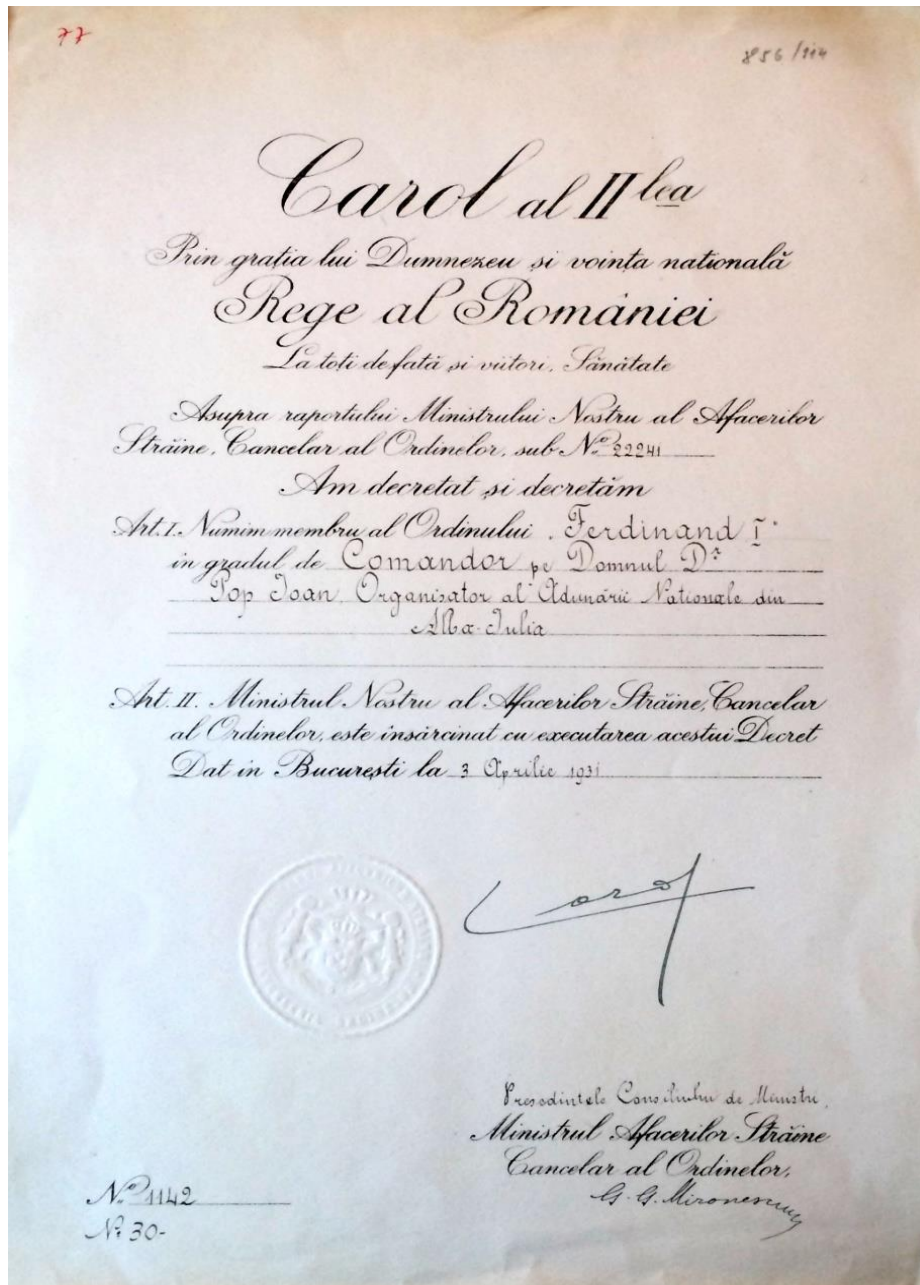 77
856/
Carol al II lea
Prin grația lui Dumnezeu și voința natională
Rege al României
La toți de fată și viitori, Sănătate
Asupra raportului Ministrului Nostru al Afacerilor
Străine, Cancelar al Ordinelor, sub No. 22241
Am decretat și decretăm
Art. I. Numim membru al Ordinului „Ferdinand I"
in gradul de Comandor pe Domnul Dr
Pop Ioan, Organisator al Adunării Naționale din
Alba-Iulia
Art. II. Ministrul Nostru al Afacerilor Străine, Cancelar
al Ordinelor, este însărcinat cu executarea acestui Decret
Dat in București la 3 Aprilie 1931
Carol
Președintele Consiliului de Miniștri,
Ministrul Afacerilor Străine
Cancelar al Ordinelor,
G. G. Mironescu
No 1142
No 30-